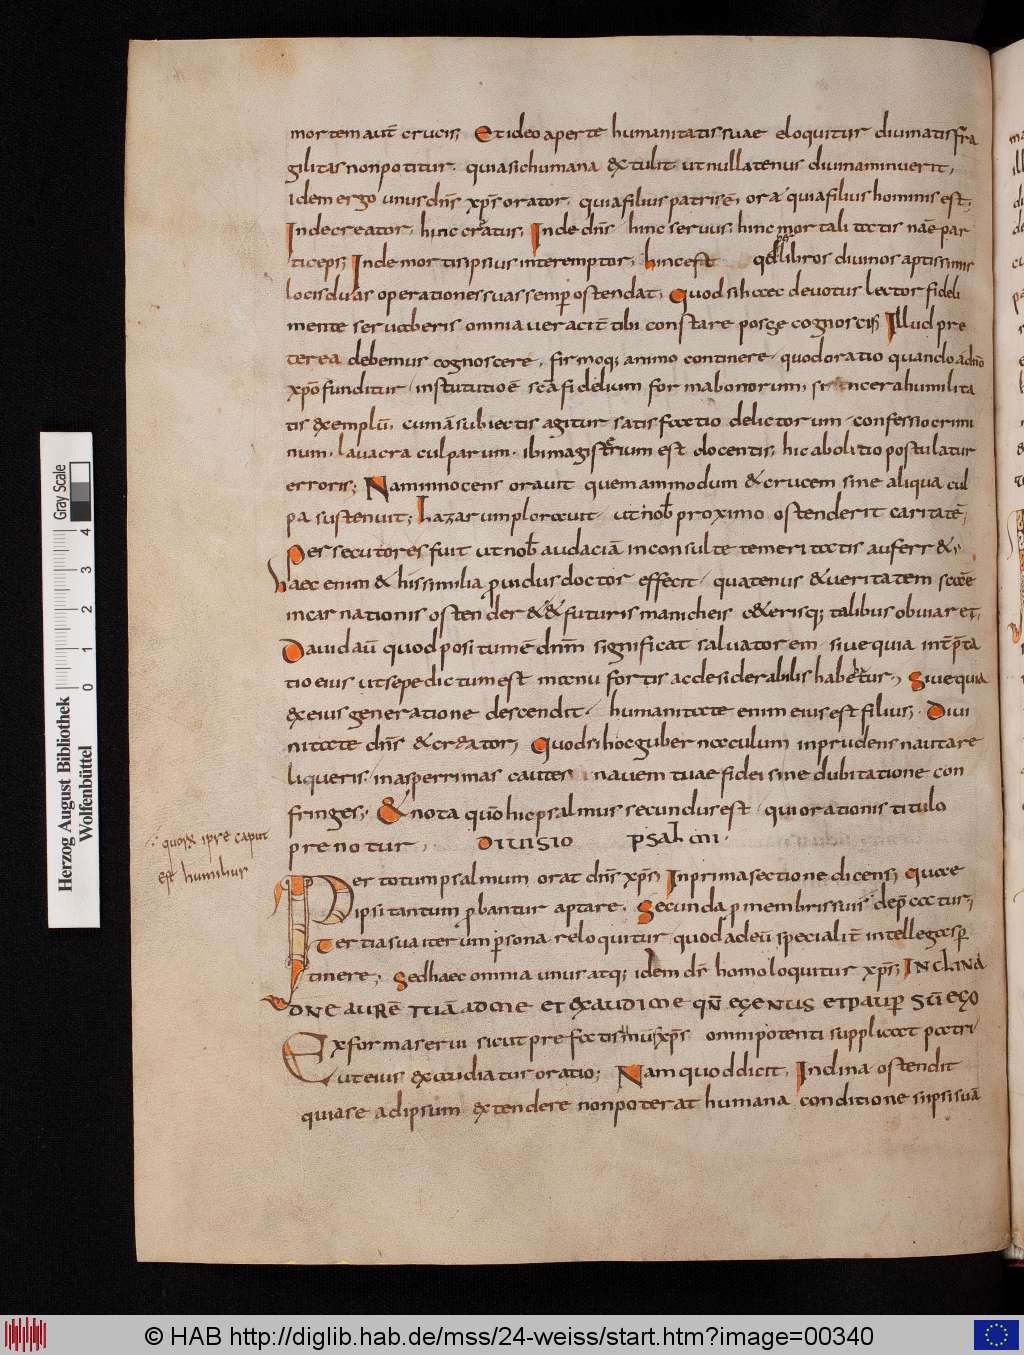 mortem autē crucis; Et ideo aperte humanitatis suae eloquitur divinatis fra
gilitas non potitur. quia sic humana extulit ut nullatenus divina minuerit,
idem ergo unus dn̄s xp̄s orator. quia filius patris ē, ora quia filius hominis est;
Inde creator. hinc creatus; Inde dn̄s hinc servus; hinc mortalitatis nr̄ae par
ticeps; Inde mortis ipsius interemptor; hinc est qđ libros divinos aptissimis
locis duas operationes suas semp̄ ostendat; Quod si haec devotus lector fideli
mente servaberis omnia veracit̄ tibi constare posse cognoscis; Illud pre
terea debemus cognoscere. firmoq; animo continere. quod oratio quando ad nō
xp̄o funditur institutio ē sc̄a fidelium forma bonorum, sincera humilita
tis exemplū. cum ā subiectis agitur satisfactio delictorum confessio crimi
num. lavacra culparum. ibi magisterium est docentis, hic abolitio postulatur
erroris; Nam innocens oravit quemammodum & crucem sine aliqua cul
pa sustenuit; Lazarum ploravit ut nob̄ proximo ostenderit caritatē;
Persecutores fuit ut nob̄ audaciā inconsulte temeritatis auferr&;
haec enim & his similia p̄vidus doctor effecit quatenus & veritatem sc̄ae
incarnationis ostender& & futuris manicheis c&erisq; talibus obviar et;
David aū quod positum ē dnm̄ significat salvatorem sive quia int̄p̄ta
tio eius ut sepe dictum est manu fortis ac desiderabilis habetur; Sive quia
ex eius generatione descendit. humanitate enim eius est filius; Divi
nitate dn̄s & creator; Quod si hoc gubernaculum inprudens nauta re
liqueris in asperrimas cautes navem tuae fidei sine dubitatione con
fringes; & nota quō hic psalmus secundus est qui orationis titulo
prenotur, DIVISIO PSALMI.
∵ quor& ipse caput
est humilius
Per totum psalmum orat dn̄s xp̄s; In prima sectione dicens; Quae
ipsi tantum p̄bantur aptare. Secunda p membris suis dep̄catur;
Tertia sua iterum p̄sona reloquitur quod ad eū specialit̄ intellegas p̄
tinere; Sed haec omnia unus atq; idem ds̄ homo loquitur xp̄s; INCLINA
DNE AURĒ TUĀ AD ME ET EXAUDI ME QN̄ EGENUS ET PAUP̄ SŪ EGO
Ex forma servi sicut prefatus xp̄s omnipotenti supplicat patri
ut eius exaudiatur oratio; Nam quod dicit, Inclina ostendit
quia se ad ipsum extendere non poterat humana conditione si ipsi suā
Herzog August Bibliothek
Wolfenbüttel
0 1 2 3 4
Gray Scale
© HAB http://diglib.hab.de/mss/24-weiss/start.htm?image=00340